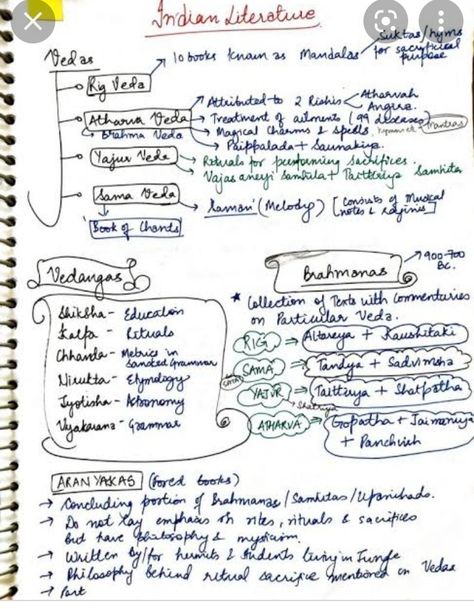 Indian Literature
Vedas
Rig Veda → 10 books known as Mandalas → Suktas/hyms
for sacrificial purpose
Atharva Veda → Attributed to 2 Rishis → Atharvah
Angira
Brahma Veda → Treatment of ailments (99 diseases)
→ Magical Charms & Spells Mantras
→ Paippalada + Saunakiya
Yajur Veda → Rituals for performing sacrifices.
→ Vajasaneyi Samhita + Taittiriya Samhita
Sama Veda → Saman (Melody) [Consists of Musical
notes & Raginis]
Book of Chants
Vedangas
Shiksha - Education
Kalpa - Rituals
Chhanda - Metrics in
Sanskrit Grammar
Nirukta - Etymology
Jyotisha - Astronomy
Vyakarana - Grammar
Brahmanas → 900-700
BC.
* Collection of Texts with Commentaries
on Particular Veda.
RIG Aitareya + Kaushitaki
SAMA Tandya + Sadvimsha
YAJUR Taittiriya + Shatpatha
ATHARVA Gopatha + Jaimaniya
+ Panchvish
ARANYAKAS (Fored books)
→ Concluding portion of Brahmanas/Samhitas/Upanishads.
→ Do not lay emphasis on rites, rituals & sacrifices
but have philosophy & mysticism.
→ Written by/for hermits & students living in Jungle
→ Philosophy behind ritual sacrifice mentioned in Vedas
→ Part